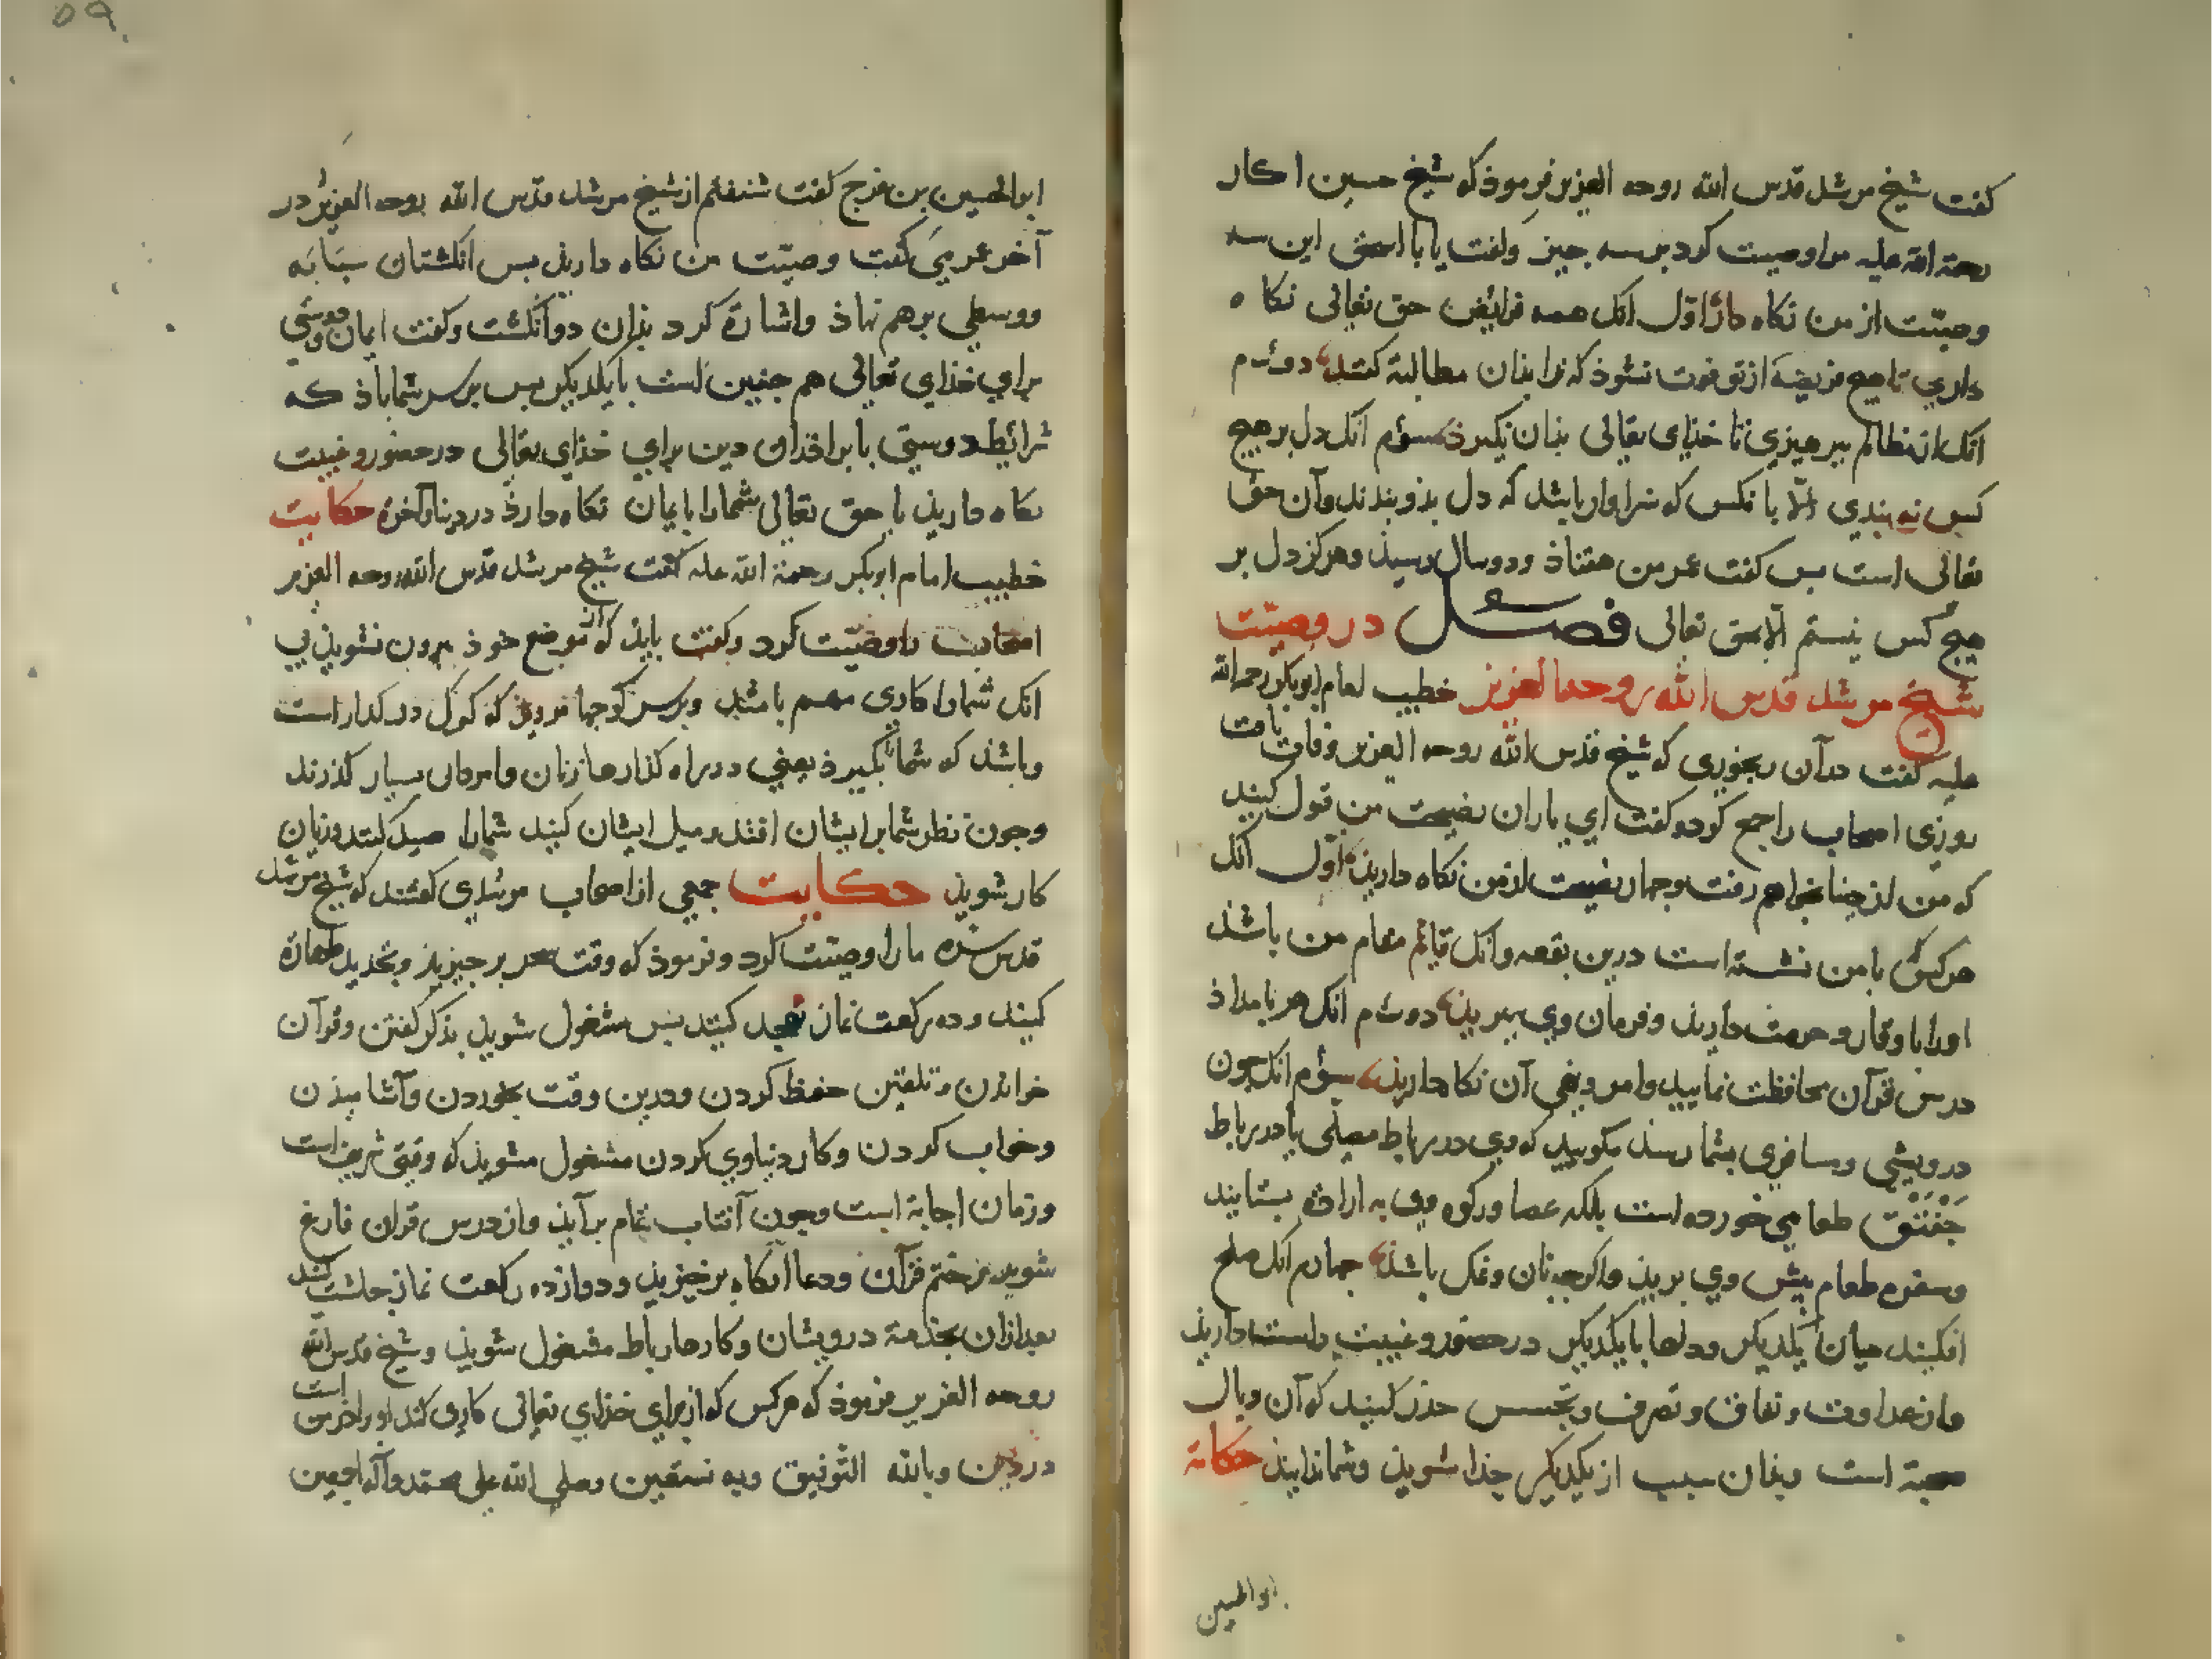 گفت شیخ مرشد قدس الله روحه العزیز فرموذ که شیخ حسین اکار
رحمة الله علیه مرا وصیت کرد بر سه جیز و گفت یا با اسحق این سه
وصیّت از من نکاه دار اوّل انک همه فرائض حق تعالی نکاه
داری تا هیج فریضه از تو فوت نشوذ که ترا بذان مطالبة کنند دوم
انک از مظالم بپرهیزی تا خذای تعالی بذان نکیرذ سوم انک دل بر هیج
کس نه بندی الّا با نکس که سزاوار باشد که دل بذو بندند و آن حق
تعالی است بس گفت عمر من هفتاذ و دو سال رسیذ و هرکز دل بر
هیج کس نبستم الّا بحق تعالی فصل در وصیّت
شیخ مرشد قدس الله روحه العزیز خطیب امام ابوبکر رحمه الله
علیه گفت در آن رنجوری که شیخ قدس الله روحه العزیز وفات یافت
روزی اصحاب را جمع کرد و گفت ای یاران نصیحت من قبول کنید
که من از دنیا بخواهم رفت و جهار نصیحت از من نکاه داریذ اوّل انک
هر کس با من نشسته است درین بقعه و انک قایم مقام من باشذ
اورا با وقار و حرمت داریذ و فرمان وی بریذ دوم انک هر بامداذ
درس قرآن محافظت نمایید و امر و نهی آن نکاه داریذ سوم انک جون
درویشی و مسافری بشما رسذ مکویید که وی در رباط مصلّی یا در رباط
جفتق طعامی خورده است بلکه عصا و رکوه وی به ارادة بستانید
و سفره طعام پیش وی بریذ و اکرجه نان و نمک باشذ جهارم انک صلح
افکنید میان یکدیکر و دلها با یکدیکر در حضور و غیبت راست داریذ
و از عداوت و نفاق و تصرف و تجسس حذر کنید که آن وبال
صحبة است و بذان سبب از یکدیکر جذا شویذ و شما ندانیذ حکایة
ابوالحسین
ابوالحسین بن فرج گفت شنفتم از شیخ مرشد قدس الله روحه العزیز در
آخر عمر می گفت وصیّت من نکاه داریذ بس انکشتان سبّابه
و وسطی بر هم نهاذ و اشارة کرد بذان دو انکشت و گفت ایمان و دوستی
برای خذای تعالی هم جنین است با یکدیکر بس بر سر شما باذ که
شرائط دوستی با براذران دین برای خذای تعالی در حضور و غیبت
نکاه داریذ تا حق تعالی شما را با ایمان نکاه دارذ در دنیا و آخرة حکایت
خطیب امام ابوبکر رحمة الله علیه گفت شیخ مرشد قدس الله روحه العزیز
اصحابنا را وصیّت کرد و گفت بایذ که از موضع خوذ بیرون نشویذ بی
انک شما را کاری مهم باشد و بر سر کوجها مرویذ که کرک در کذار است
و باشذ که شما را بکیرذ یعنی در راه کذارها زنان و امردان بسیار کذرند
و جون نظر شما بر ایشان افتد و میل ایشان کنید شما را صید کنند و زیان
کار شویذ حکایت جمعی از اصحاب مرشدی گفتند که شیخ مرشد
قدس سره ما را وصیّت کرد و فرموذ که وقت سحر بر خیزیذ و تجدید طهارة
کنید و ده رکعت نماز تهجد کنید بس مشغول شویذ بذکر گفتن و قرآن
خواندن و تلقین حفظ کردن و درین وقت بخوردن و آشامیذن
و خواب کردن و کار دنیاوی کردن مشغول مشویذ که وقتی شریف است
و زمان اجابة است و جون آفتاب تمام برآیذ و از درس قران فارغ
شوید از ختم قرآن و دعا انکاه بر خیزیذ و دوازده رکعت نماز جاشت کنید
بعد ازان بخذمة درویشان و کارها رباط مشغول شویذ و شیخ قدس الله
روحه العزیز فرموذ که هر کس که از برای خذای تعالی کاری کند او براذر من است
در دین و بالله التوفیق وبه نستعین وصلی الله علی محمد وآله اجمعین